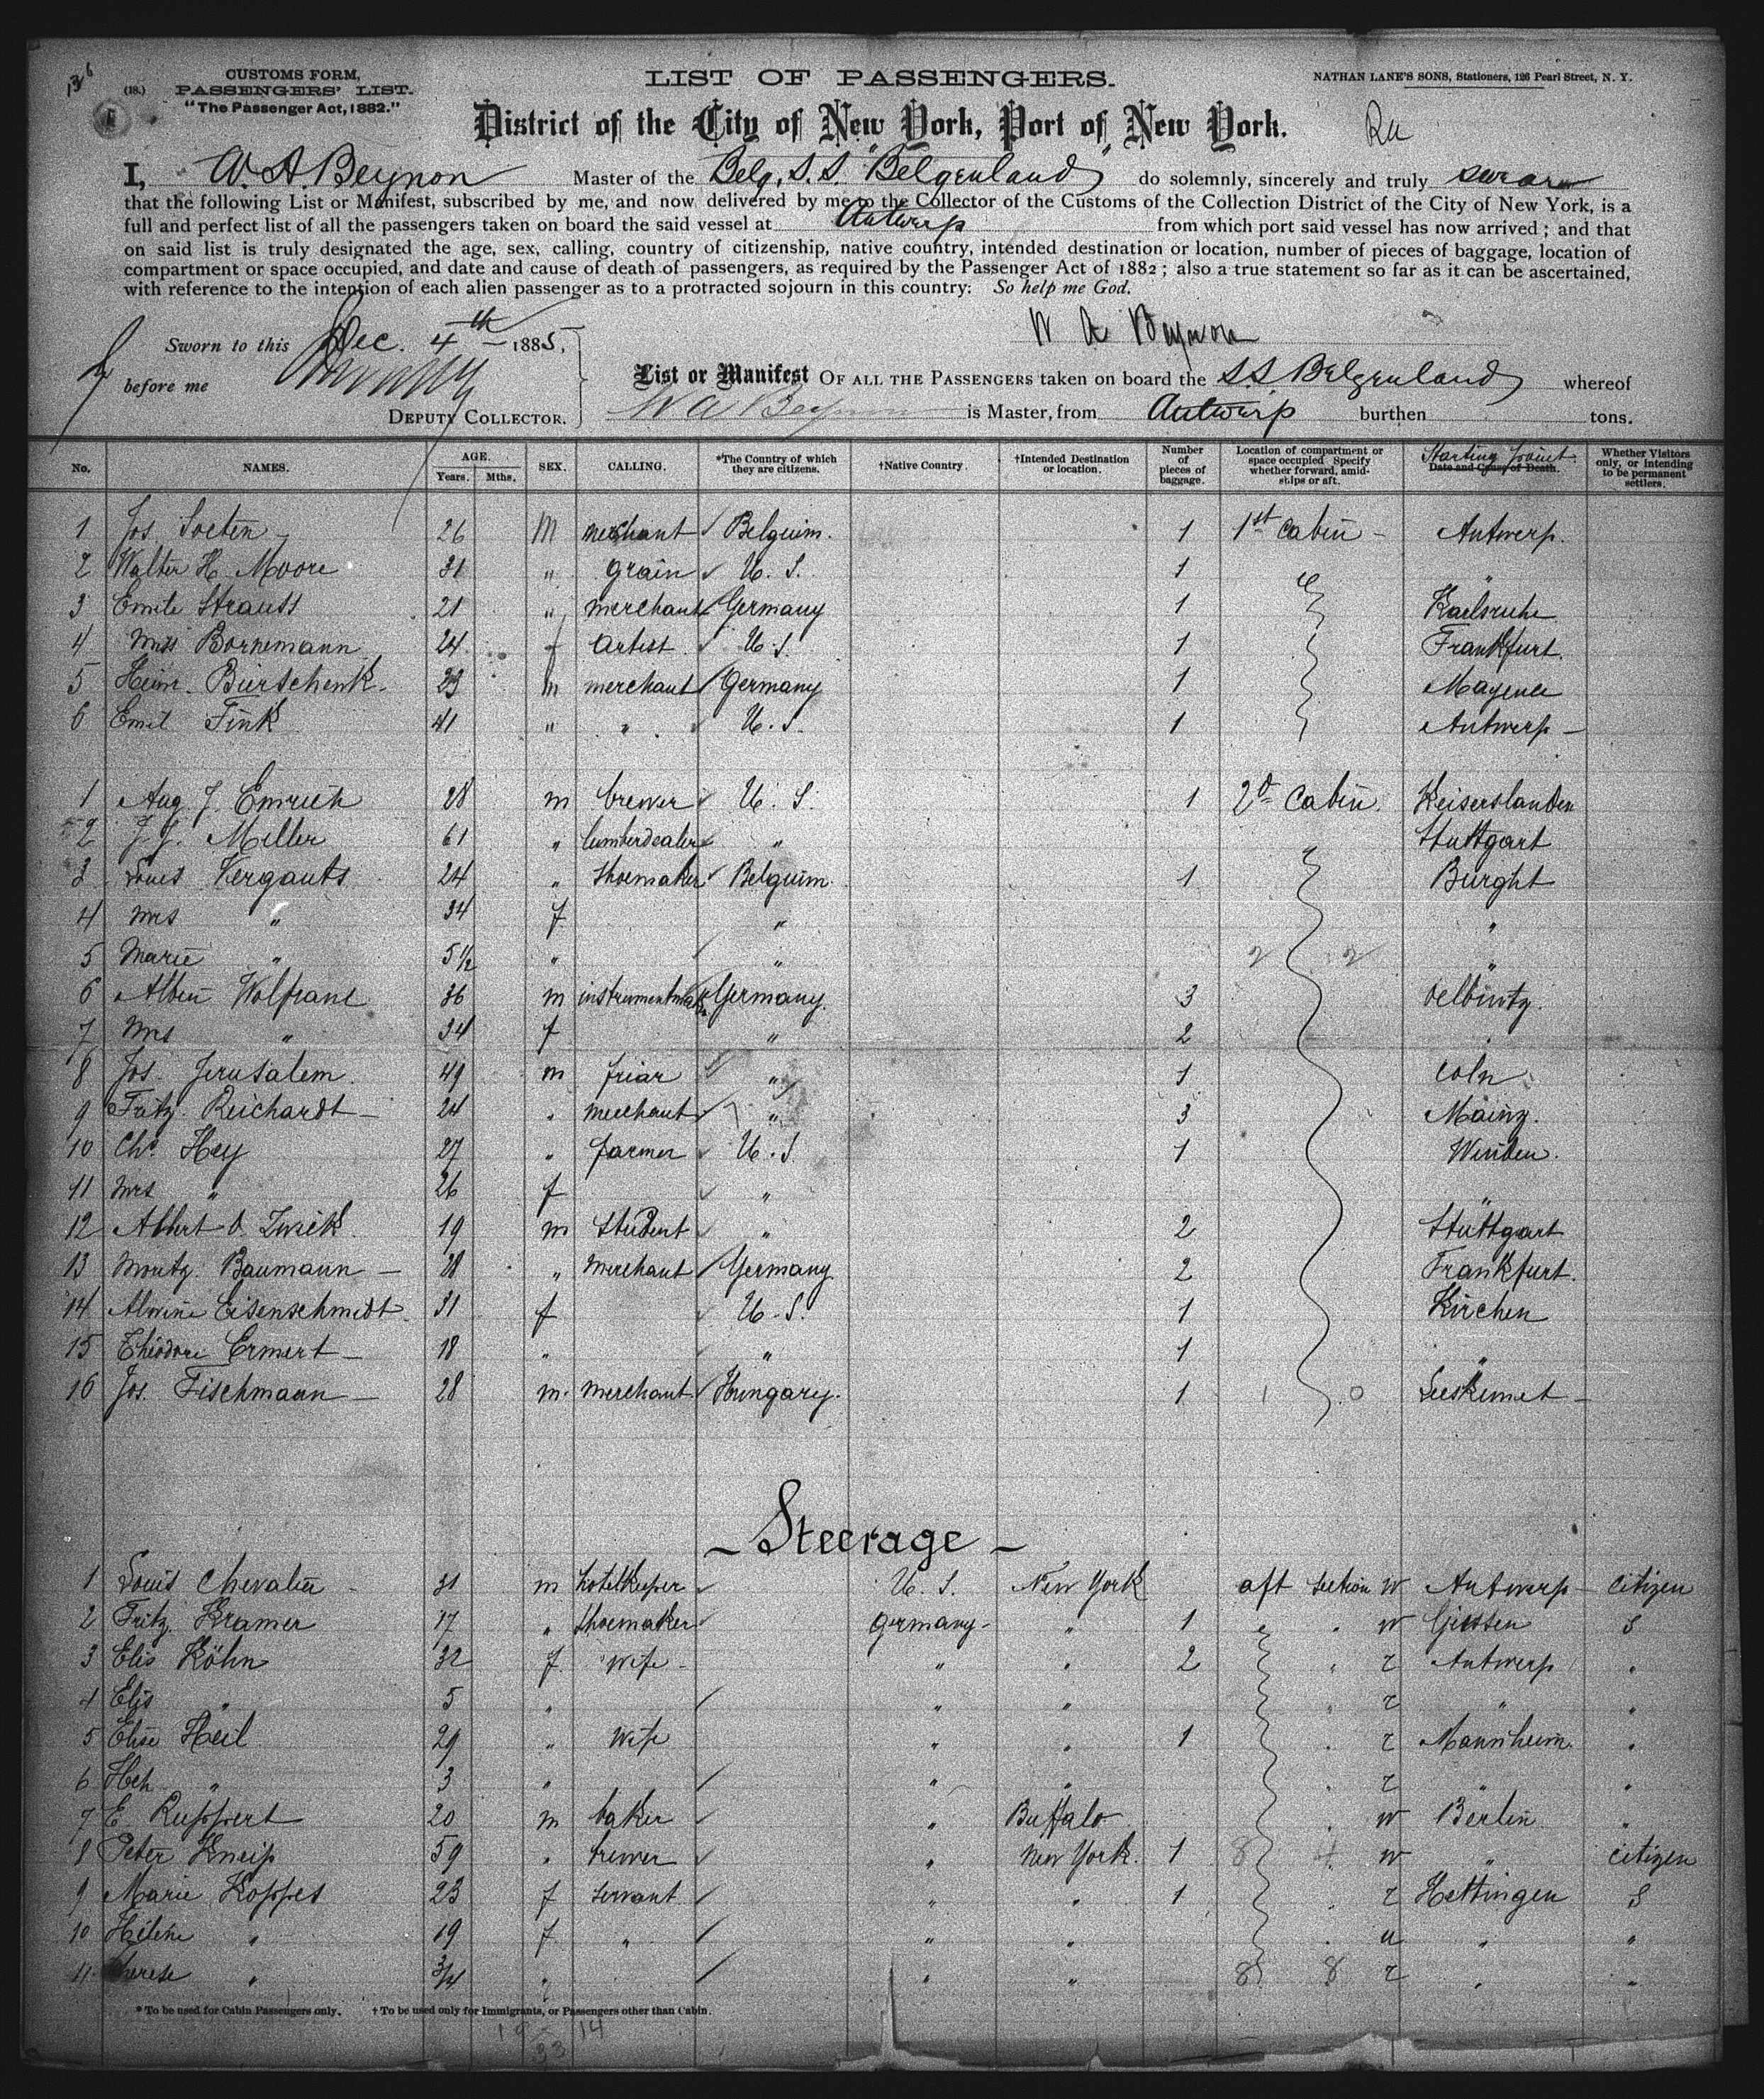 136
(18.)
CUSTOMS FORM,
PASSENGERS' LIST.
"The Passenger Act, 1882."
LIST OF PASSENGERS.
NATHAN LANE'S SONS, Stationers, 126 Pearl Street, N. Y.
District of the City of New York, Port of New York.
I, W. A. Beynon Master of the Belg. S.S. "Belgenland" do solemnly, sincerely and truly swear
that the following List or Manifest, subscribed by me, and now delivered by me to the Collector of the Customs of the Collection District of the City of New York, is a
full and perfect list of all the passengers taken on board the said vessel at Antwerp from which port said vessel has now arrived; and that
on said list is truly designated the age, sex, calling, country of citizenship, native country, intended destination or location, number of pieces of baggage, location of
compartment or space occupied, and date and cause of death of passengers, as required by the Passenger Act of 1882; also a true statement so far as it can be ascertained,
with reference to the intention of each alien passenger as to a protracted sojourn in this country. So help me God.
W A Beynon
Sworn to this Dec. 4th 1885,
before me
DEPUTY COLLECTOR.
List or Manifest OF ALL THE PASSENGERS taken on board the S.S. Belgenland whereof
W A Beynon is Master, from Antwerp burthen tons.
No. NAMES. AGE. Years. Mths. SEX. CALLING. *The Country of which they are citizens. †Native Country. †Intended Destination or location. Number of pieces of baggage. Location of compartment or space occupied Specify whether forward, amidships or aft. Starting Point Date and Cause of Death. Whether Visitors only, or intending to be permanent settlers.
1 Jos. Soeten 26 M merchant Belguim. 1 1st Cabin - Antwerp.
2 Walter H. Moore 31 " grain U. S. 1 "
3 Emile Strauss 21 " merchant Germany 1 Karlsruhe
4 Miss Bornemann 24 f artist U. S. 1 Frankfurt.
5 Heinr. Burschenk 23 m merchant Germany 1 Mayence
6 Emil Fink 41 " " U. S. 1 Antwerp -
1 Aug. J. Emrich 28 m brewer U. S. 1 2d Cabin. Keiserslauten
2 J. J. Miller 61 " lumberdealer " Stuttgart
3 Louis Vergauts 24 " Shoemaker Belguim. 1 Burght
4 Mrs " 34 f " "
5 Marie " 5½ " " "
6 Albin Wolfram 36 m instrumentmaker Germany. 3 Oelbintz.
7 Mrs " 34 f " 2 "
8 Jos. Jerusalem 49 m friar " 1 Coln
9 Fritz. Reichardt - 24 " merchant " 3 Mainz.
10 Chs. Hey 27 " farmer U. S. 1 Winden.
11 Mrs " 26 f " "
12 Albert O. Zwick 19 m Student " 2 Stuttgart
13 Moritz. Baumann - 28 " Merchant Germany 2 Frankfurt.
14 Alwine Eisenschmidt 31 f U. S. 1 Kirchen
15 Theodore Ermert - 18 " " 1 "
16 Jos. Fischmann - 28 m. Merchant Hungary. 1
- Steerage -
1 Louis Chevalier 31 m hotelkeeper U. S. New York aft section W Antwerp - citizen
2 Fritz. Kramer 17 " Shoemaker Germany - " 1 " " W Giessen S
3 Elis Köhn 32 f. Wife - " " 2 " r Antwerp "
4 Elis " 5 " " " " r " "
5 Elise Heil 29 " Wife " " 1 " r Mannheim. "
6 Hch " 3 " " " " r " "
7 E. Ruppert 20 m baker " Buffalo " W Berlin "
8 Peter Kneip 59 " brewer " New York. 1 W " citizen
9 Marie Koppes 23 f Servant " " 1 " r Hettingen S
10 Hélène " 19 f " " " " u " "
11 Therese " 3/4 " " " 8 8 r " "
* To be used for Cabin Passengers only. † To be used only for Immigrants, or Passengers other than Cabin.
19 14
33